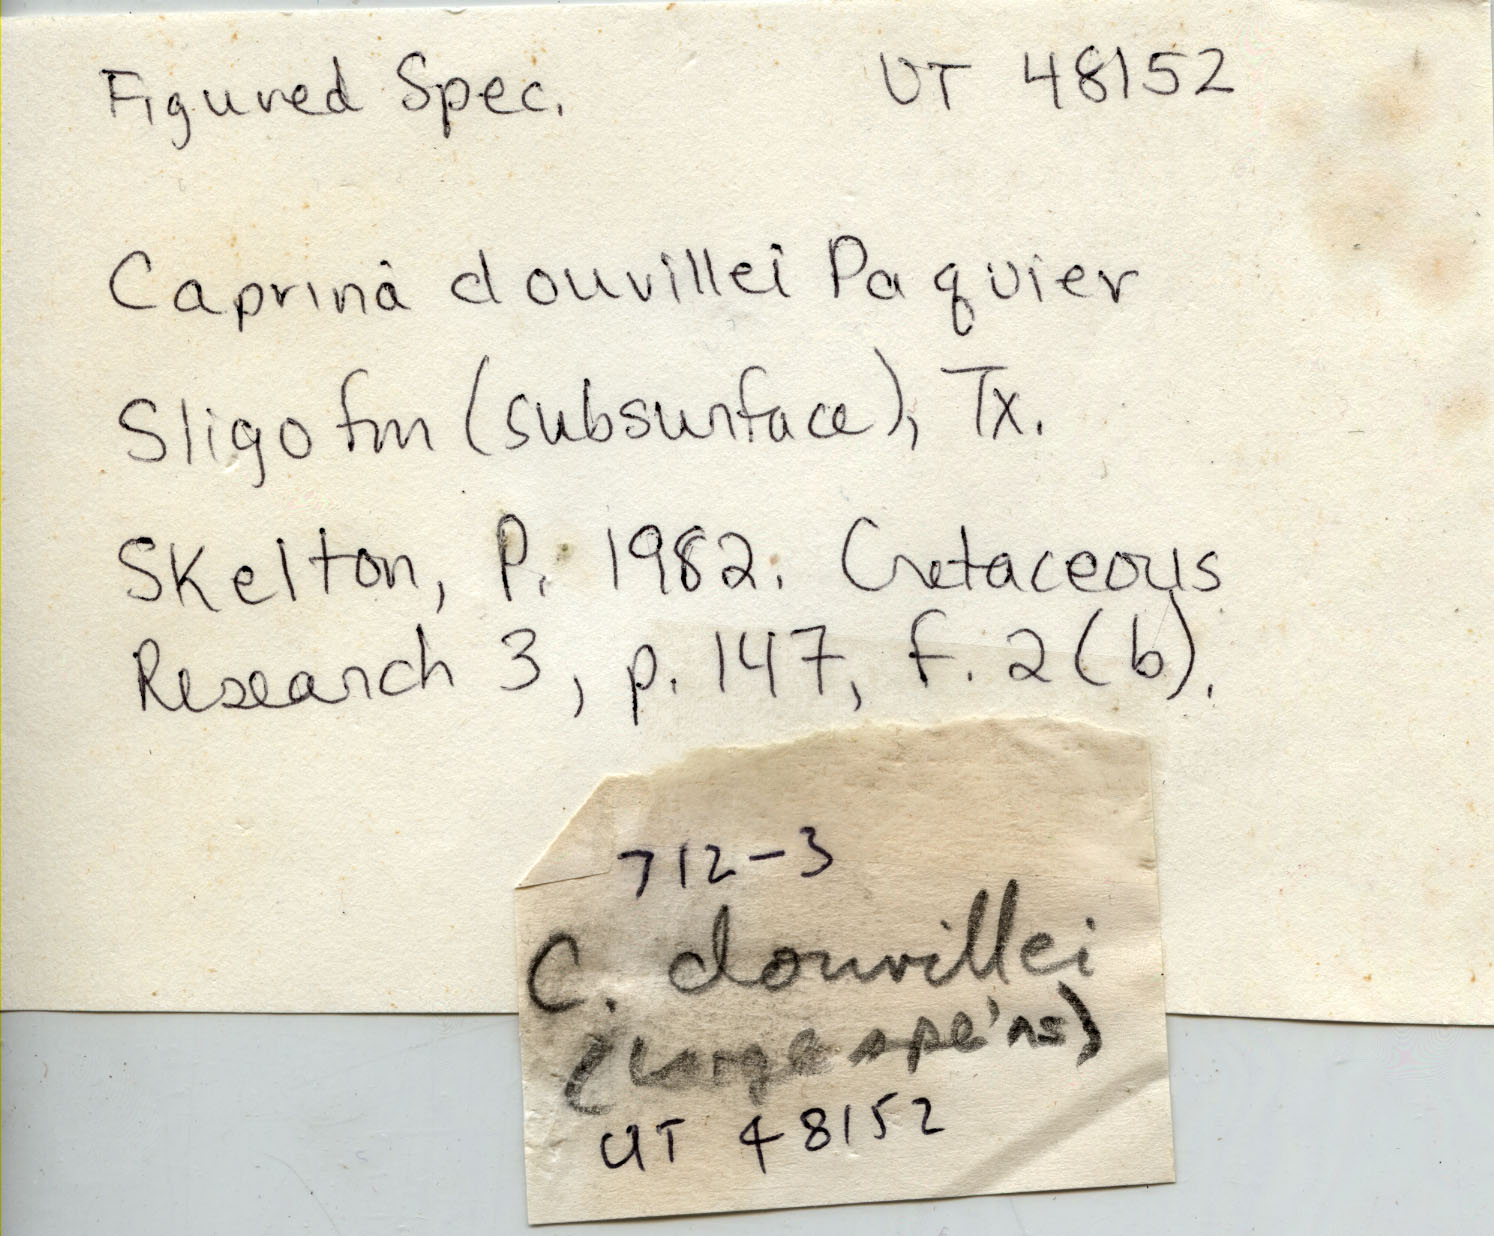 Figured Spec. UT 48152
Caprina douvillei Paquier
Sligo fm (subsurface), Tx.
Skelton, P. 1982. Cretaceous
Research 3, p. 147, f. 2(b).
712-3
C. douvillei
(Large spe'ns)
UT 48152